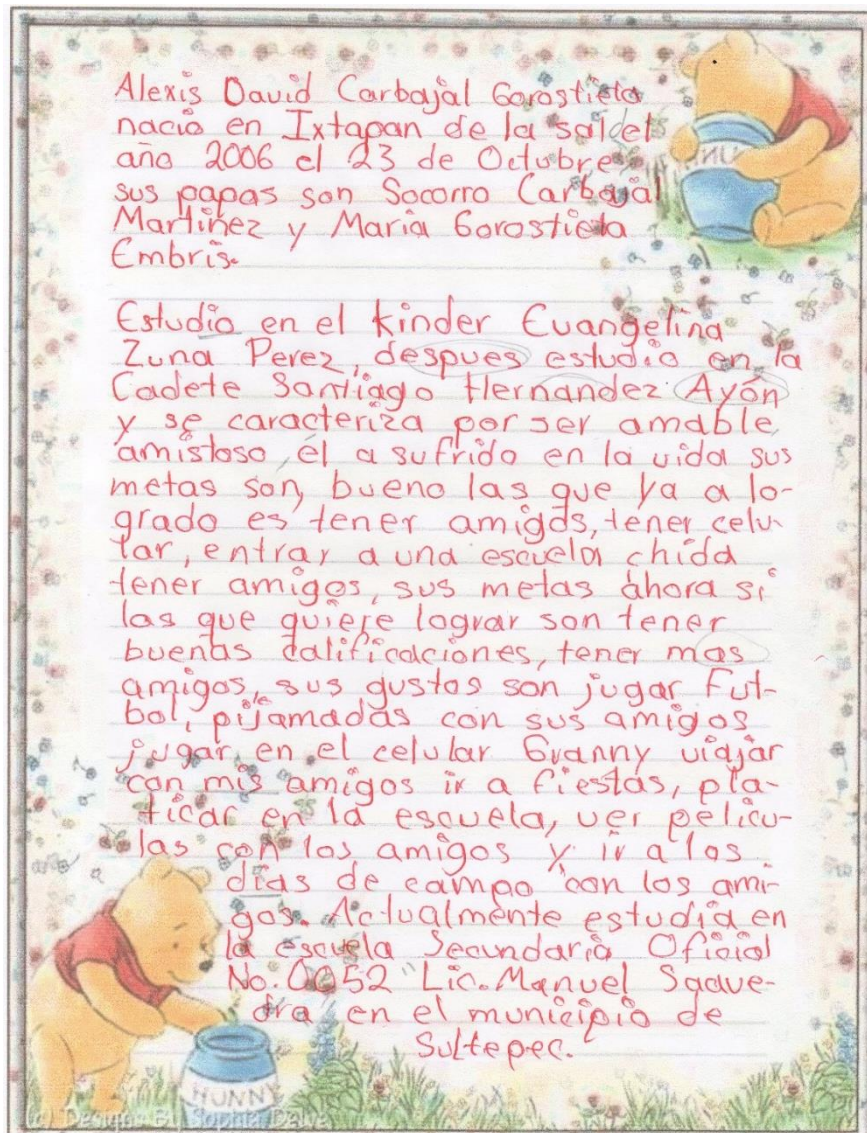 Alexis David Carbajal Gorostieta
nació en Ixtapan de la sal el
año 2006 el 23 de Octubre
sus papas son Socorro Carbajal
Martinez y Maria Gorostieta
Embris.
Estudio en el kinder Evangelina
Zuna Perez, despues estudio en la
Cadete Santiago Hernandez Ayón
y se caracteriza por ser amable
amistoso él a sufrido en la vida sus
metas son, bueno las que ya a lo-
grado es tener amigos, tener celu-
lar, entrar a una escuela chida
tener amigos, sus metas ahora si
las que quiere lograr son tener
buenas calificaciones, tener mas
amigos, sus gustos son jugar fut-
bol, pijamadas con sus amigos
jugar en el celular Granny viajar
con mis amigos ir a fiestas, pla-
ticar en la escuela, ver pelicu-
las con los amigos y ir a los
días de campo con los ami-
gos. Actualmente estudia en
la escuela Secundaria Oficial
No. 0052 "Lic. Manuel Saave-
dra en el municipio de
Sultepec.
HUNNY
(c) Designs By Sophia Delve